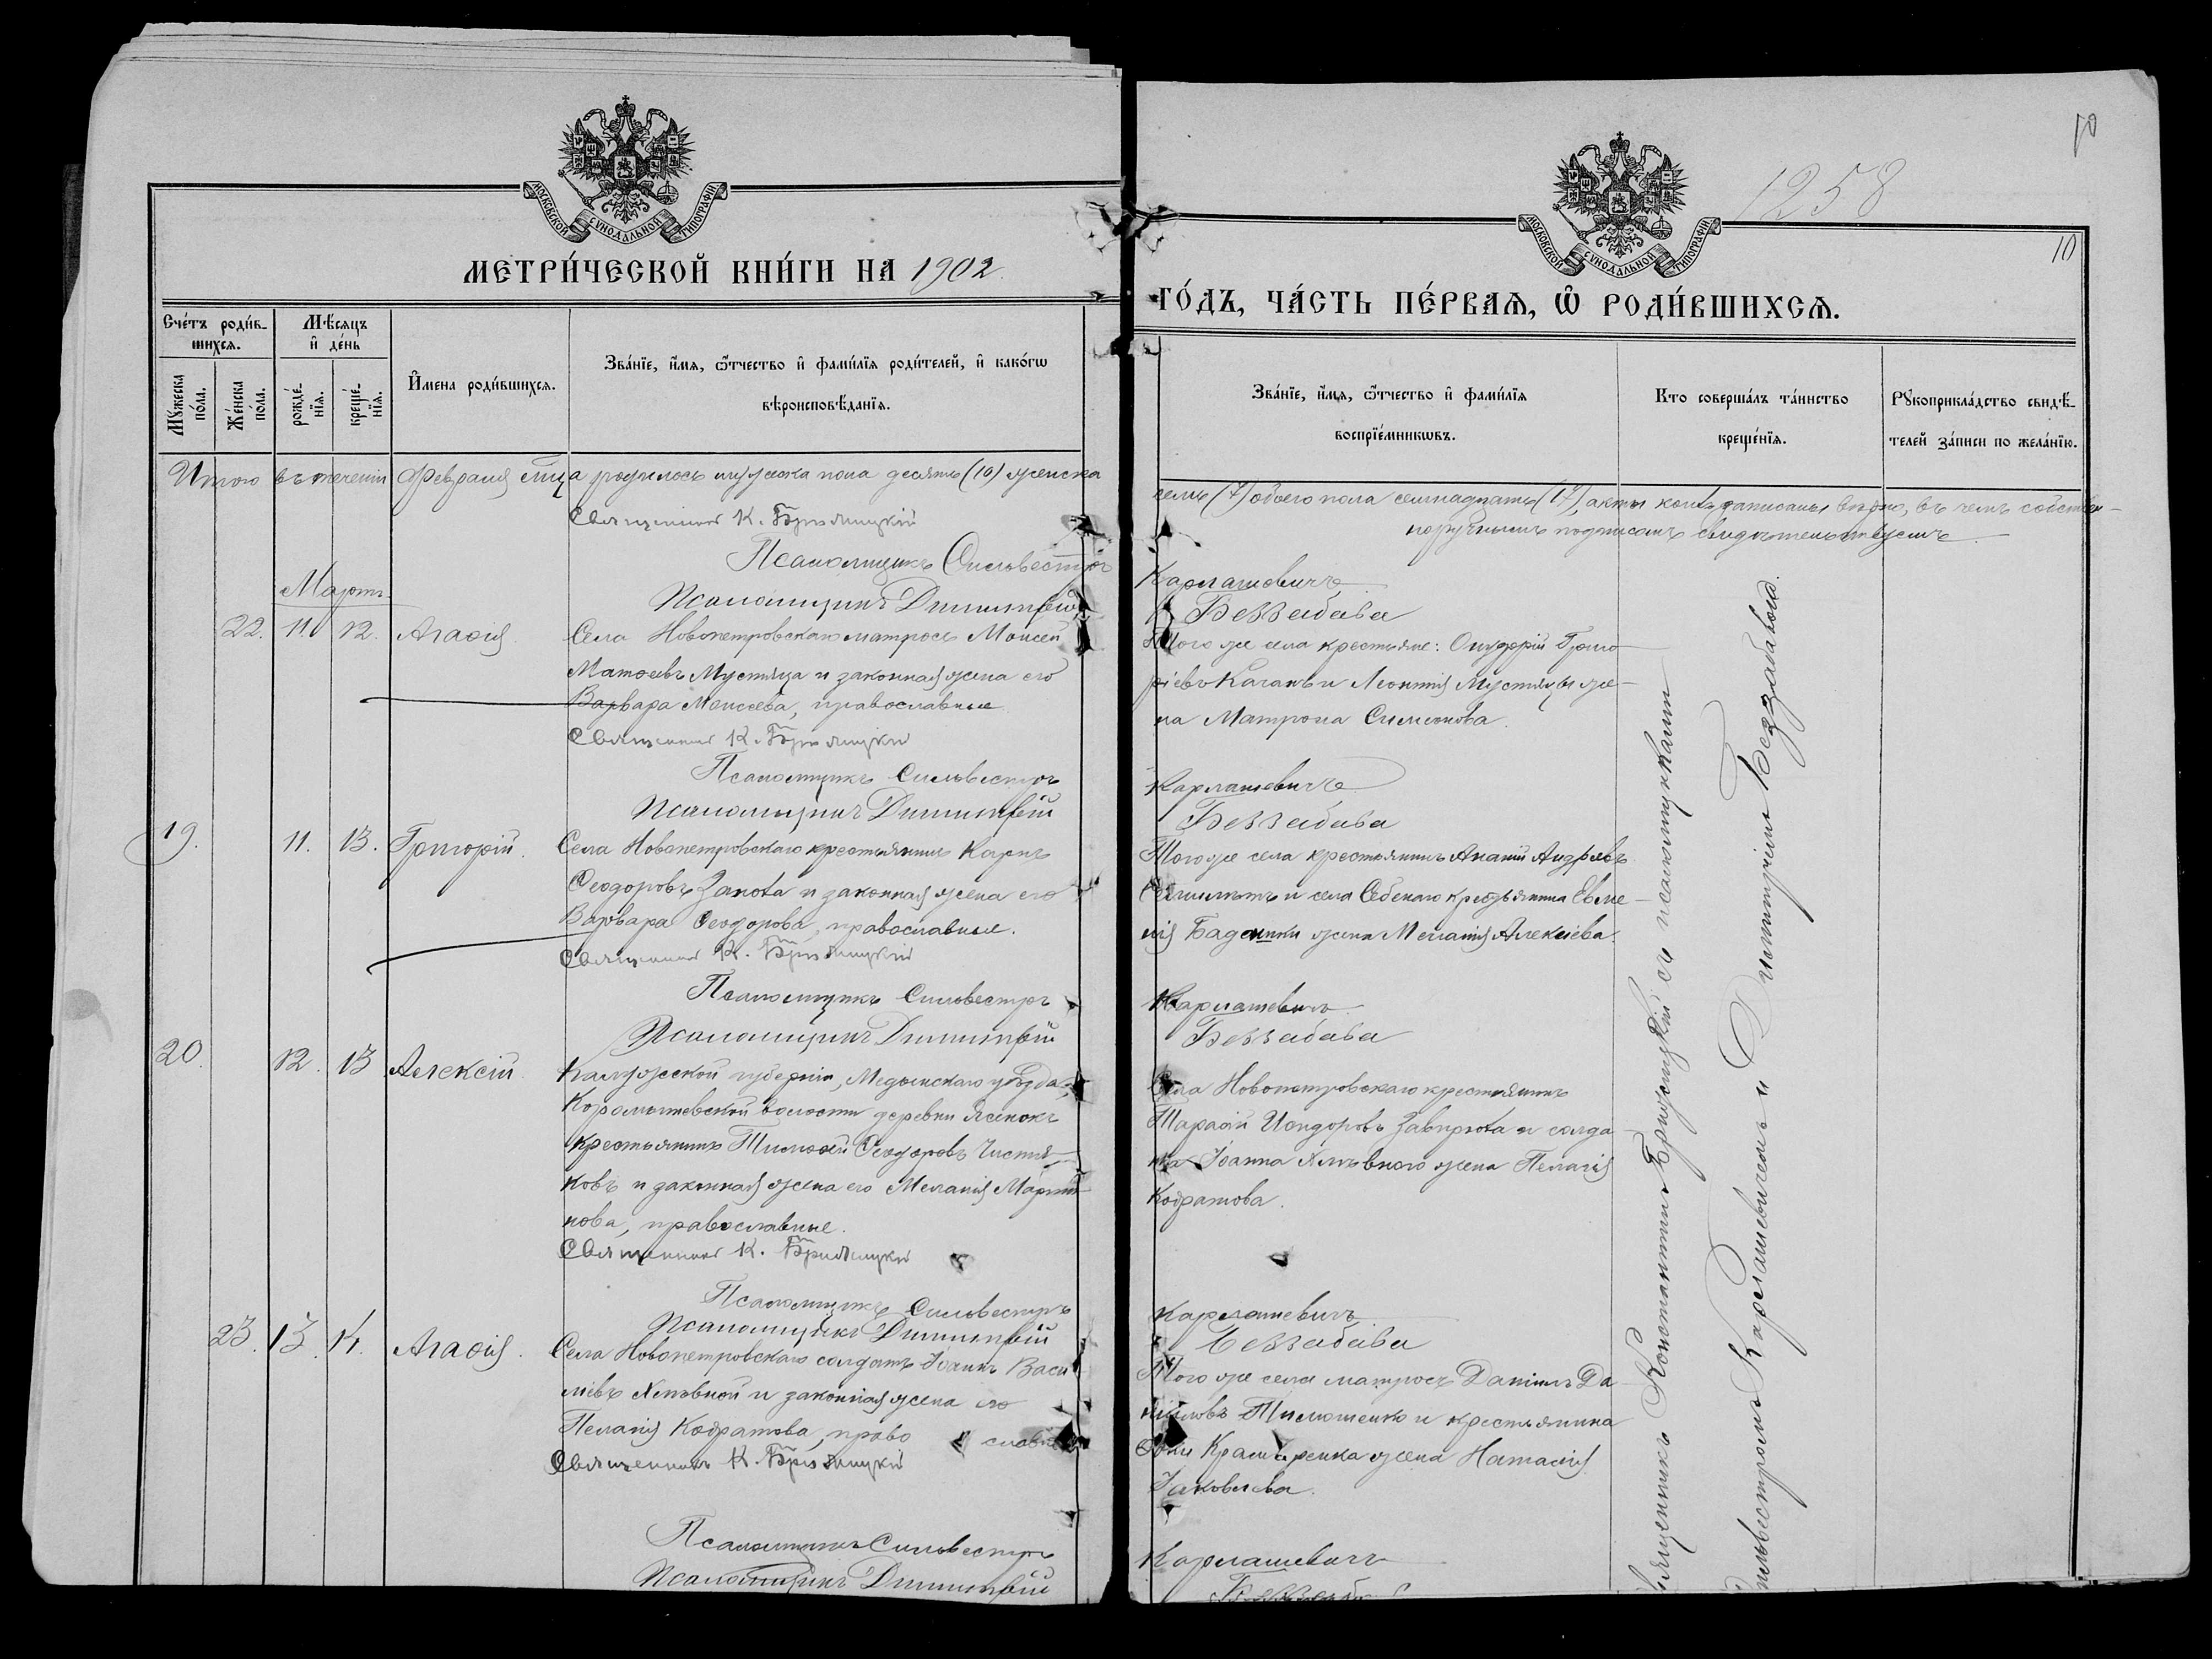 10
1258
10
МОСКОВСКОЙ СѴНОДАЛЬНОЙ ТИПОГРАФІИ
МОСКОВСКОЙ СѴНОДАЛЬНОЙ ТИПОГРАФІИ
МЕТРИ́ЧЕСКОЙ КНИ́ГИ НА 1902.
ГО́ДЪ, ЧА́СТЬ ПЕ́РВАѦ, Ѡ҆ РОДИ́ВШИХСѦ.
Сче́тъ роди́в-
шихсѧ.
Мѣ́сѧцъ
и҆ де́нь
Мꙋ́жеска
по́ла.
Же́нска
по́ла.
рожде́-
нїѧ.
креще́-
нїѧ.
И҆́мена роди́вшихсѧ.
Зва́нїе, и҆́мѧ, ѻ҆́тчество и҆ фами́лїѧ роди́телей, и҆ како́гѡ
вѣроисповѣ́данїѧ.
Зва́нїе, и҆́мѧ, ѻ҆́тчество и҆ фами́лїѧ
воспрїе́мникѡвъ.
Кто соверша́лъ та́инство
креще́нїѧ.
Рꙋкоприкла́дство свидѣ́-
телей за́писи по жела́нїю.
Итого въ теченіи Февраля м-ца родилось мужска пола десять (10) женска
семь (7) обоего пола семнадцать (17), акты коихъ записаны вѣрно, въ чемъ собствен-
норучнымъ подписомъ свидѣтельствуемъ.
Священникъ К. Бризмицкій
Псаломщикъ Сильвестръ
Карлашевичъ
Псаломщикъ Димитрій
Беззабава
Мартъ.
22. 11. 12. Агаѳія
Села Новопетровскаго матросъ Моисей
Матѳеевъ Мустяца и законная жена его
Варвара Моисеева, православные
Того же села крестьяне: Онуфрій Григо-
ріевъ Каганъ и Леонтія Мустяцы же-
на Матрона Симеонова.
Священникъ К. Бризмицкій
Псаломщикъ Сильвестръ
Карлашевичъ
Псаломщикъ Димитрій
Беззабава
19. 11. 13. Григорій.
Села Новопетровскаго крестьянинъ Карпъ
Ѳеодоровъ Закота и законная жена его
Варвара Ѳеодорова, православные.
Того же села крестьянинъ Ананій Андреевъ
и села Себенаго крестьянина Евме-
нія жена Меланія Алексіева.
Священникъ К. Бризмицкій
Псаломщикъ Сильвестръ
Карлашевичъ
Псаломщикъ Димитрій
Беззабава
20. 12. 13 Алексій
Калужской губерніи, Медынскаго уѣзда,
волости деревни Ясенокъ
крестьянинъ Тимоѳей Ѳеодоровъ Чистя-
ковъ и законная жена его Меланія Марты-
нова, православные.
Села Новопетровскаго крестьянинъ
Тарасій Исидоровъ Завирюха и солда-
та Іоанна Хлѣвного жена Пелагія
Кодратова.
Священникъ К. Бризмицкій
Псаломщикъ Сильвестръ
Карлашевичъ
Псаломщикъ Димитрій
Беззабава
23. 13. 14. Агаѳія.
Села Новопетровскаго солдатъ Іоаннъ Васи-
ліевъ Хлѣвной и законная жена его
Пелагія Кодратова, право славные
Того же села матросъ Даніилъ Да-
ніиловъ Тимошенко и крестьянина
жена Наталія
Іаковлева.
Священникъ К. Бризмицкій
Псаломщикъ Сильвестръ
Карлашевичъ
Псаломщикъ Димитрій
Священникъ Константинъ Бризмицкій съ псаломщиками
Сильвестромъ Карлашевичемъ и Димитріемъ Беззабавою.